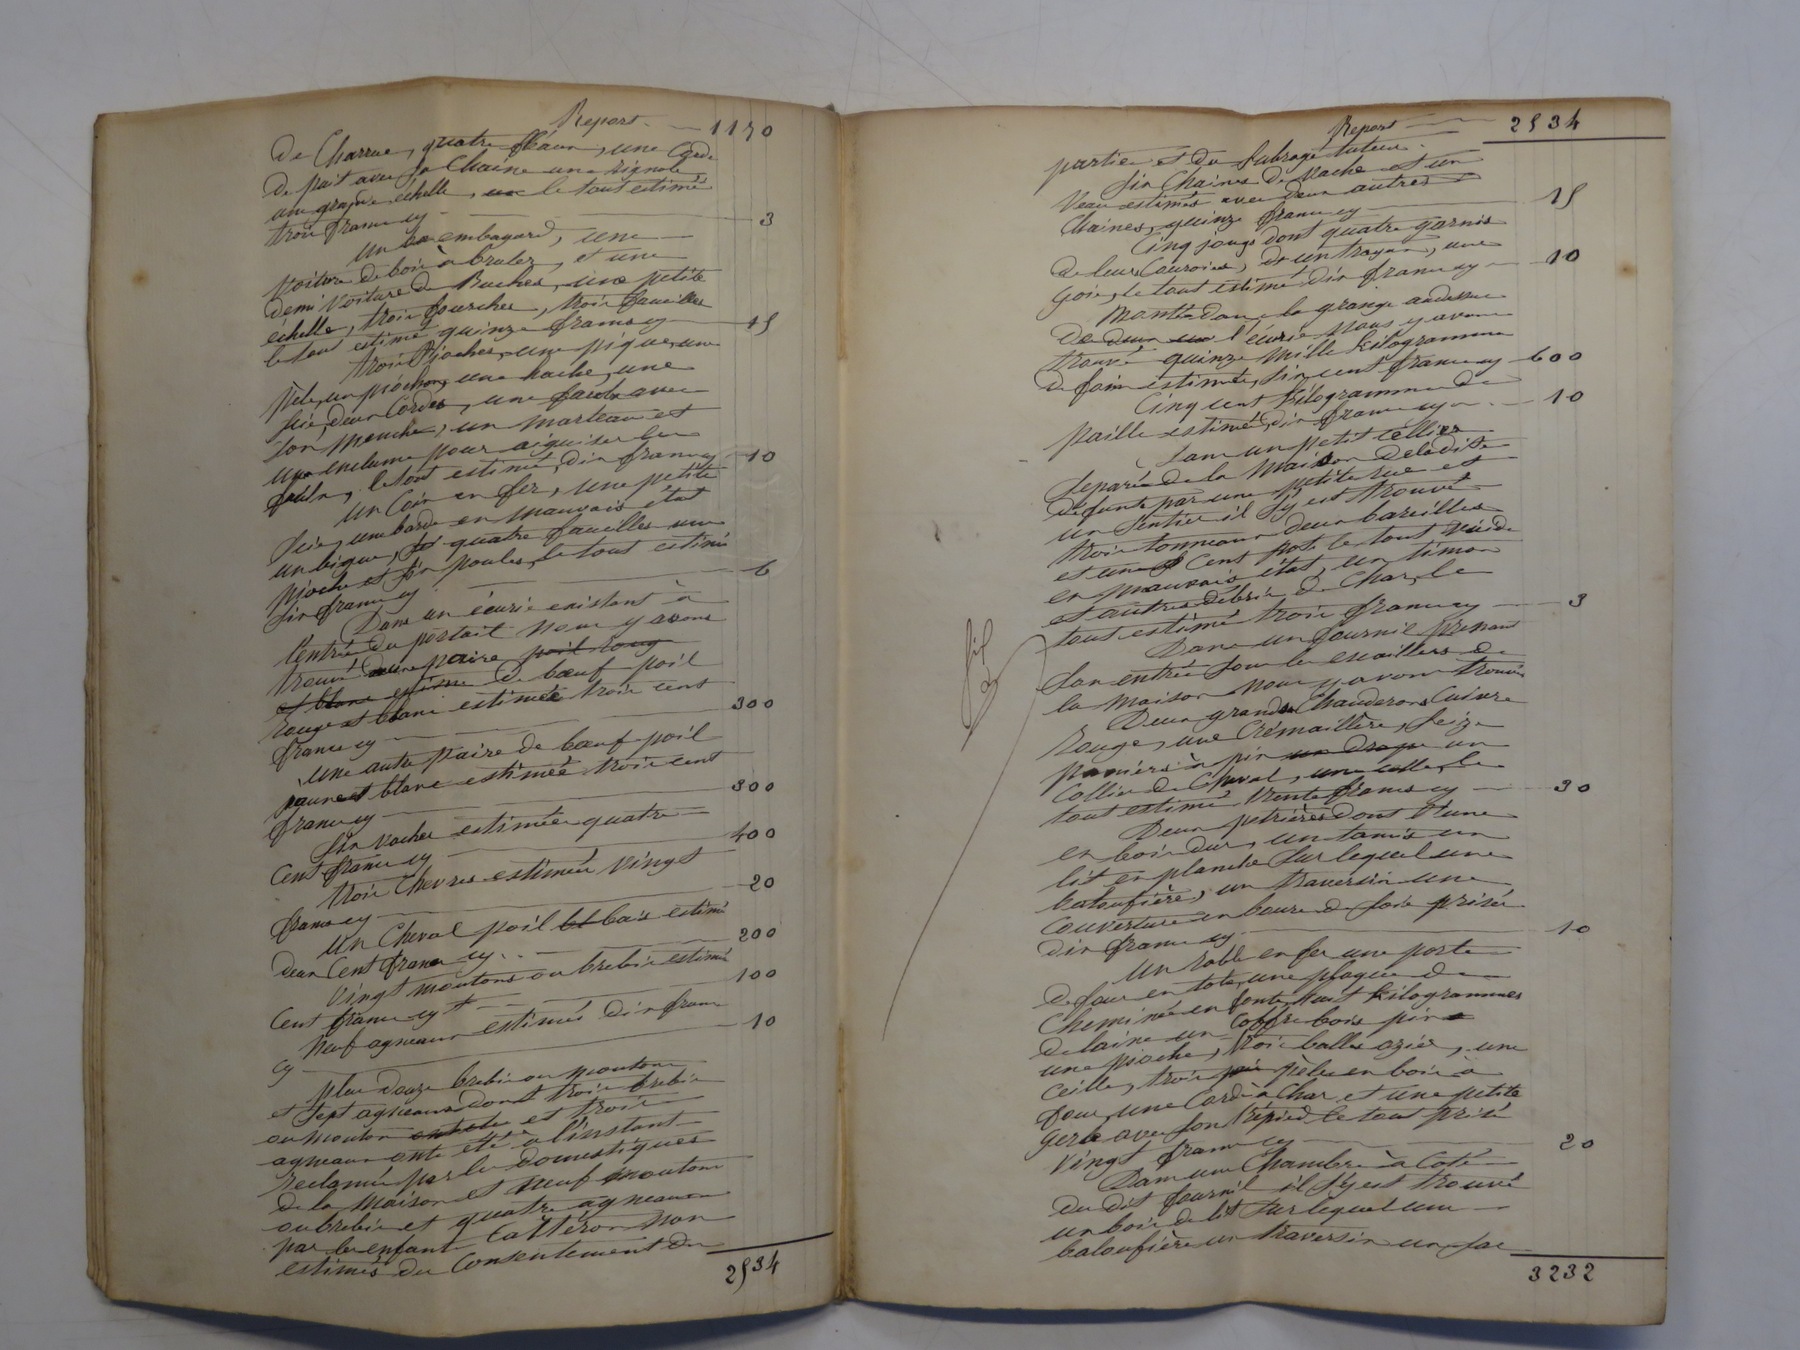 Report 1170
de Charrue, quatre fléaux, une Corde
de puit avec sa Chaine une
une grande échelle, le tout estimé
trois francs cy 3
Un embagard, une
voiture de bois à bruler, et une
demi voiture de Buches, une petite
échelle, trois fourches, trois faucilles
le tout estimé quinze francs cy 15
trois Pioches, une pique, une
pèle, un piochon, une hache, une
scie, deux Cordes, une faulx avec
son manche, un marteau et
une enclume pour aiguiser les
faulx, le tout estimé dix francs cy 10
Un Coin en fer, une petite
Scie, en mauvais état
un bigue, quatre faucilles une
pioche et six poules, le tout estimé
six francs cy 6
Dans un écurie existant à
l'entrée du portait nous y avons
trouvé une paire poil roug
et blanc estimée de bœuf poil
rouge et blanc estimée trois cent
francs cy 300
Une autre paire de bœuf poil
jaune et blanc estimée trois cent
francs cy 300
Six vaches estimées quatre
Cent francs cy 400
trois Chevres estimées vingt
francs cy 20
Un Cheval poil bl bais estimé
deux Cent francs cy 200
Vingt moutons ou brebis estimé
Cent francs cy 100
Neuf agneaux estimés dix francs
cy 10
plus douze brebis ou moutons
et sept agneaux dont trois brebis
ou mouton et trois
agneaux ont été à l'instant
reclamés par les domestiques
de la maison et neuf moutons
ou brebis et quatre agneaux
par les enfants Cattéron non
estimés du Consentement des
2534
Report 2534
parties et du subrogé tuteur.
Six Chaines de vache et un
Veau estimés avec deux autres
Chaines, quinze francs cy 15
Cinq jougs dont quatre garnis
de leurs Couroies, et un trayon, une
goie, le tout estimé dix francs cy 10
Montés dans la grange audessus
de l'écurie nous y avons
trouvé quinze mille kilogrammes
de foin estimés, six cent francs cy 600
Cinq cent kilogrammes de
paille estimés dix francs cy 10
Dans un petit cellier
separé de la maison de ladite
défunte par une petite rue et
un sentier il s'y est trouvé
trois tonneaux deux bareilles
et une Cent pots le tout vuide
en mauvais état, un timon
et autres débris de Char, le
tout estimé trois francs cy 3
Dans un fournil prenant
son entrée sous les escaliers de
la maison nous y avons trouvé
Deux grands Chauderons Cuivre
rouge, une Crémaillère, seize
paniers à pin un un
Collier de Cheval, une selle, le
tout estimé trente francs cy 30
Deux petrières dont l'une
en bois dur, un tamis un
lit en planche sur lequel une
baloufière, un traversin une
Couverture en boure de soie prisés
dix francs cy 10
Un rable en fer une porte
de four en tole, une plaque de
Cheminée en fonte, huit kilogrammes
de laine un Coffre bois pin
une pioche, trois balles ozier, une
Ceille, trois pèles en bois à
four, une Corde à Char et une petite
gerle avec son trépied le tout prisé
vingt francs cy 20
Dans une Chambre à Coté
du dit fournil il s'y est trouvé
un bois de lit sur lequel une
baloufière un traversin un sac
3232